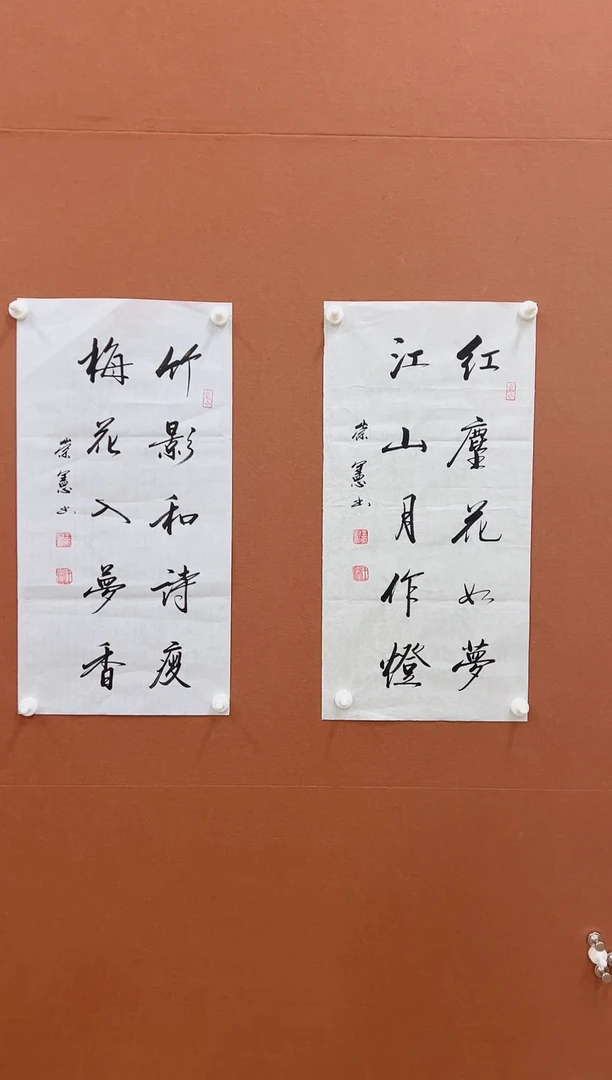 红塵花如夢
江山月作燈
崇憲书
竹影和詩瘦
梅花入夢香
崇憲书